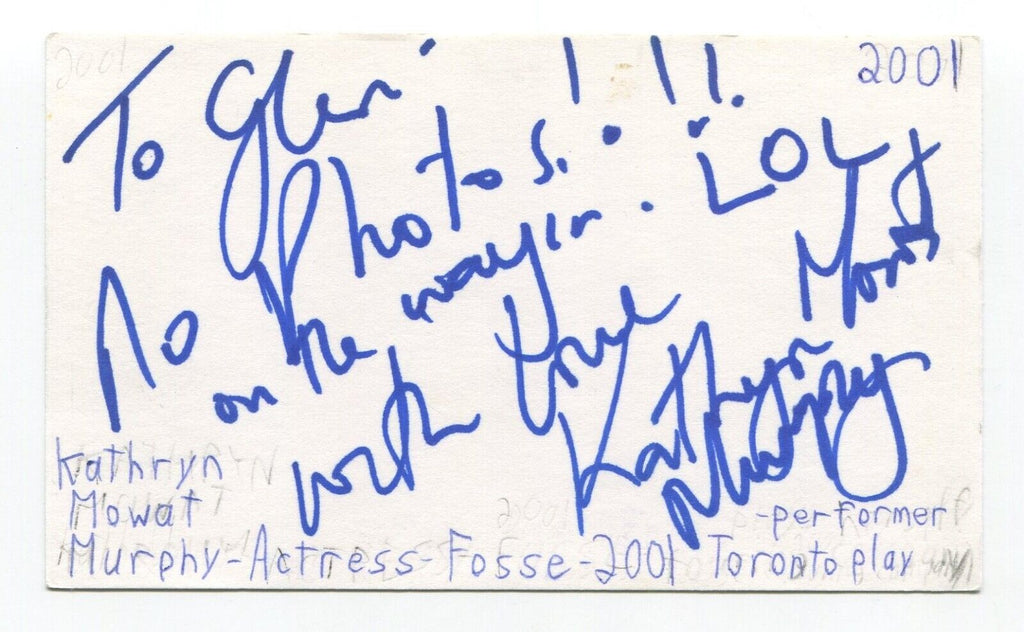 To Glen 2001
No Photos!!!
on the way in. LOL
with Love
Kathryn Mowat
Murphy
Kathryn
Mowat -performer
Murphy-Actress-Fosse-2001 Toronto play